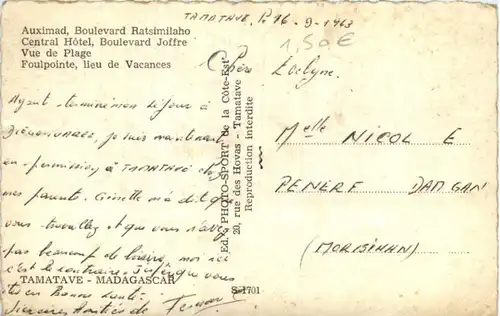 TAMATAVE, le 16-9-1963
Auximad, Boulevard Ratsimilaho
Central Hôtel, Boulevard Joffre
Vue de Plage
Foulpointe, lieu de Vacances
1,50€
Chère Evelyne.
Ayant terminé mon séjour à
DIEGO SUAREZ, je suis maintenant
en permission à TAMATAVE chez
mes parents. Ginette m'a dit que
vous travaillez et que vous n'avez
pas beaucoup de loisirs, moi
c'est le contraire. J'espère que vous
êtes en bonne santé.
Sincères Amitiés de
Ed. PHOTO-SPORT de la Côte-Est
20, rue des Hovas - Tamatave
Reproduction interdite
Melle NICOL E
PENERF DAMGAN
(MORBIHAN)
TAMATAVE - MADAGASCAR
S-1701